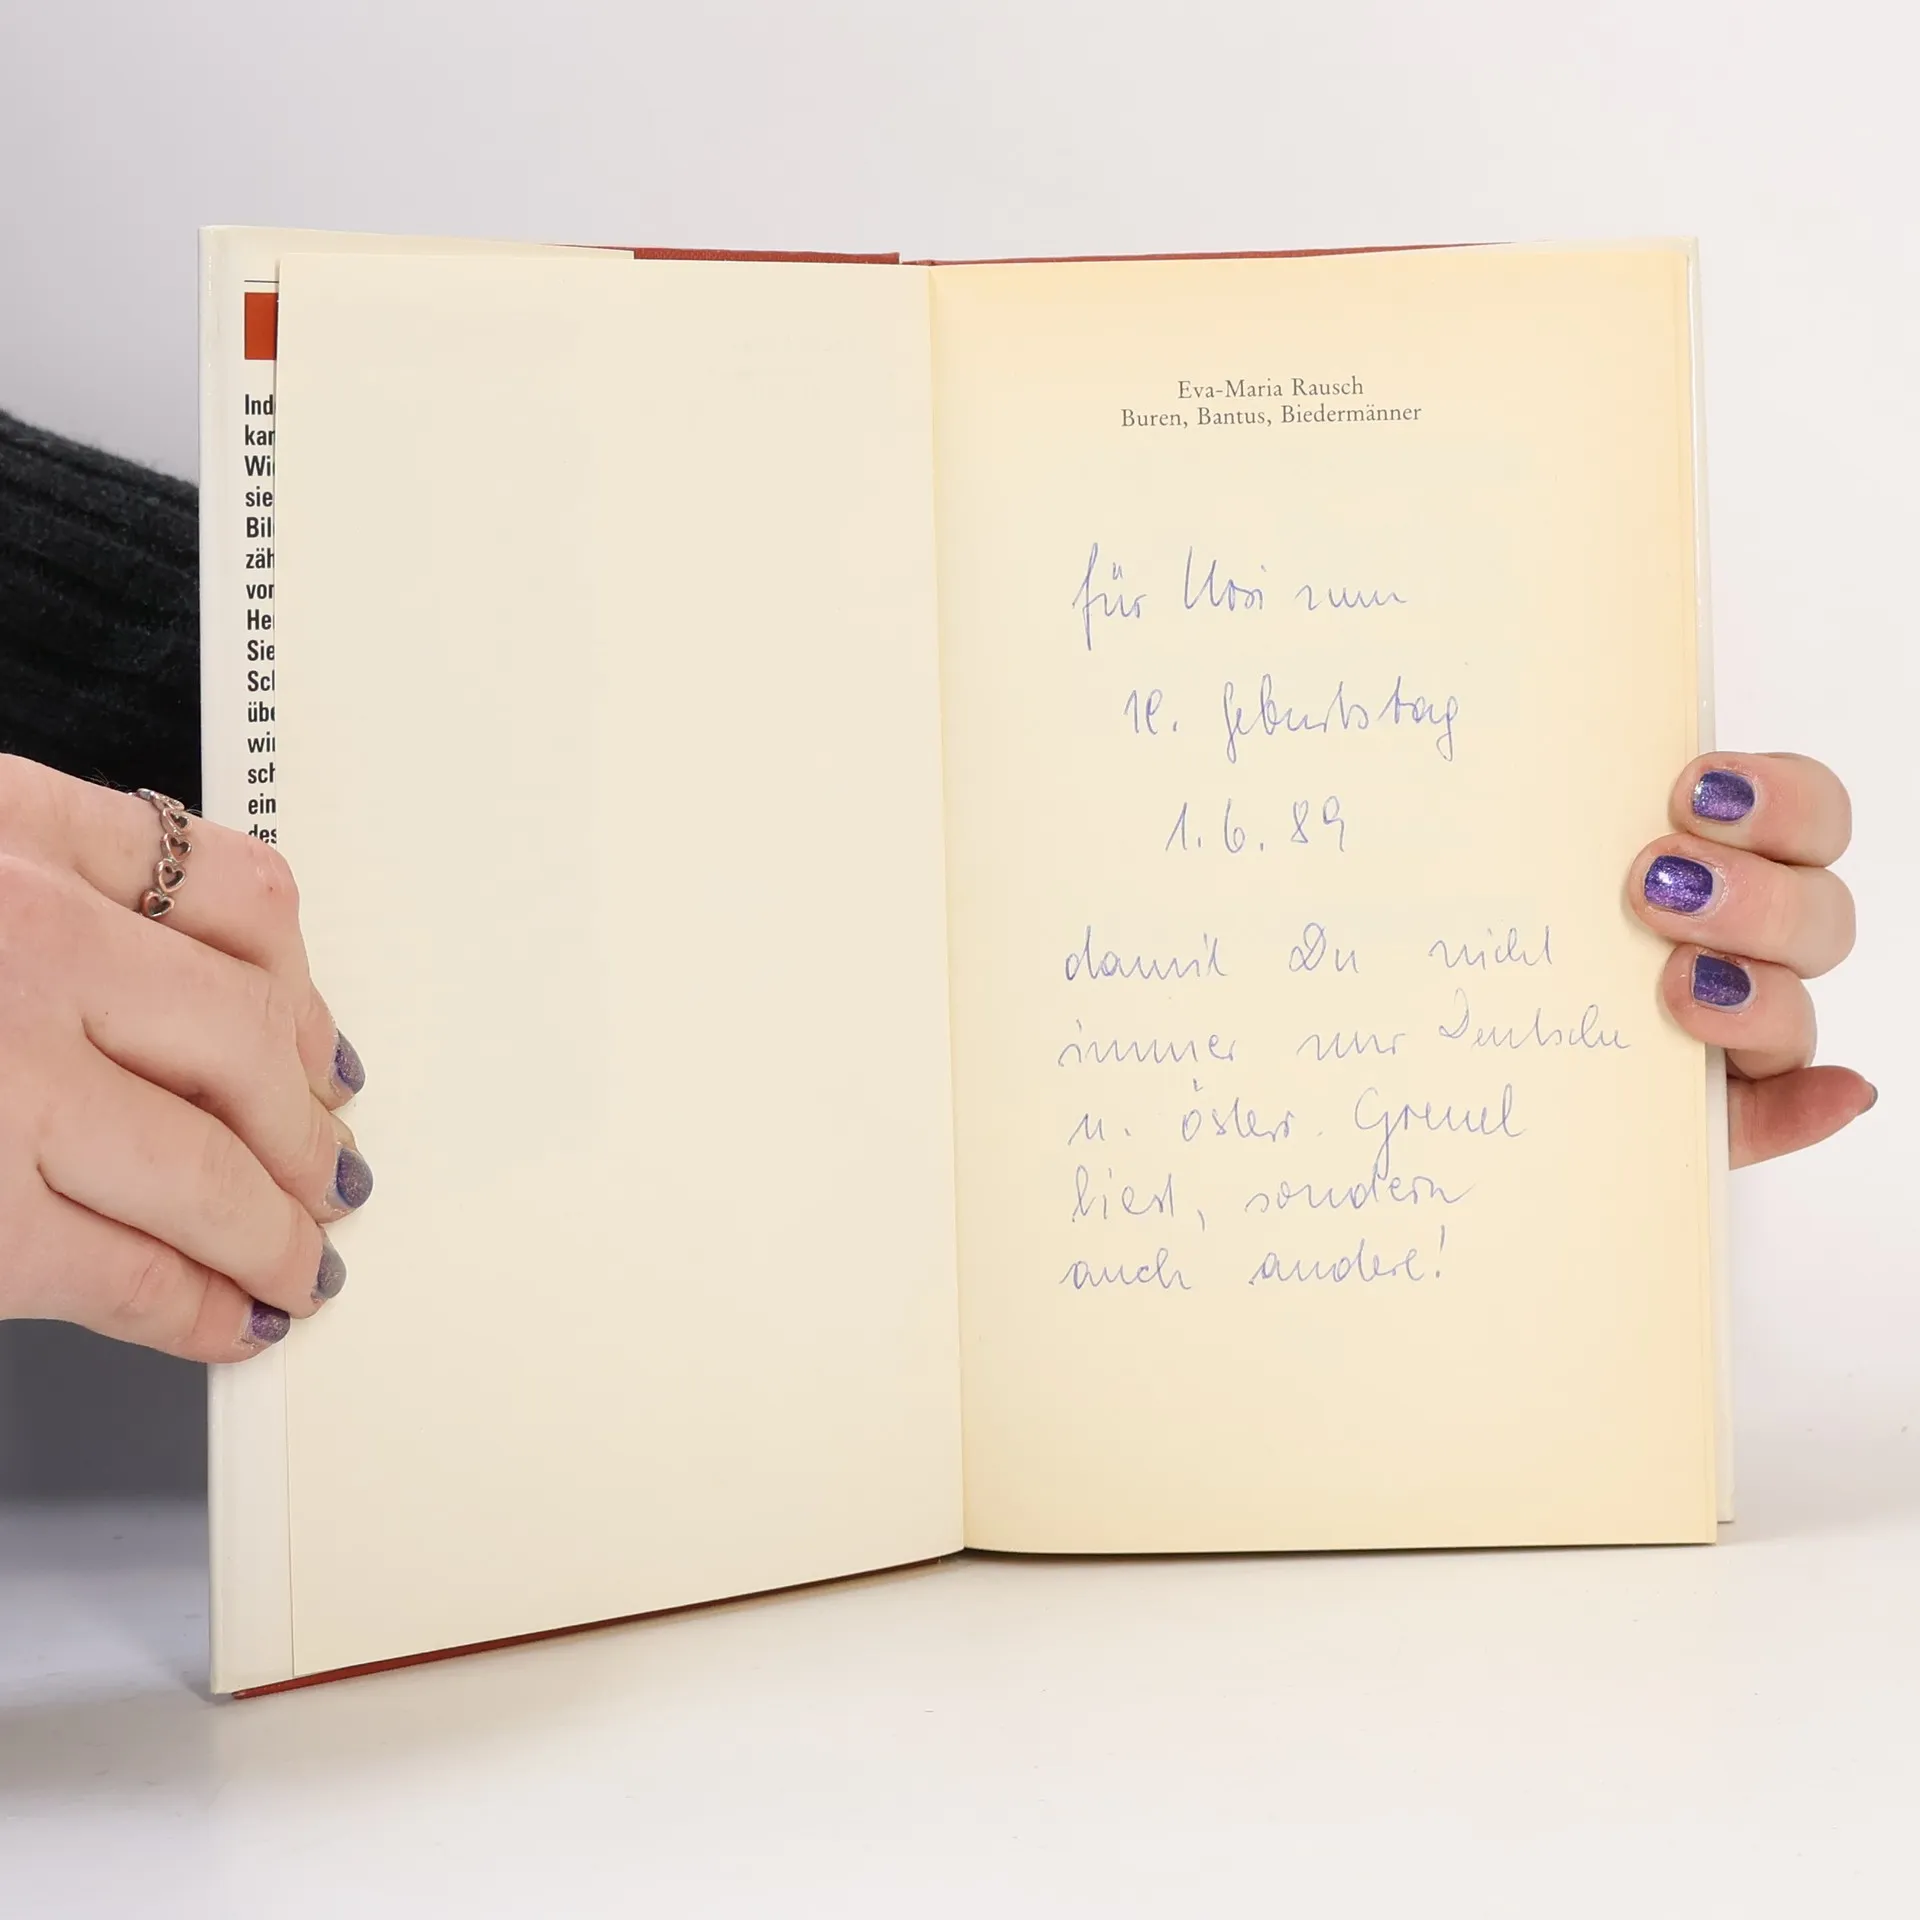 Ind
kan
Wi
sie
Bil
zäh
vor
He
Sie
Sch
übe
wir
sch
ein
des
Eva-Maria Rausch
Buren, Bantus, Biedermänner
für zum
Geburtstag
1.6.89
damit Du nicht
immer nur Deutsche
u. österr. Greuel
liest, sondern
auch andere!